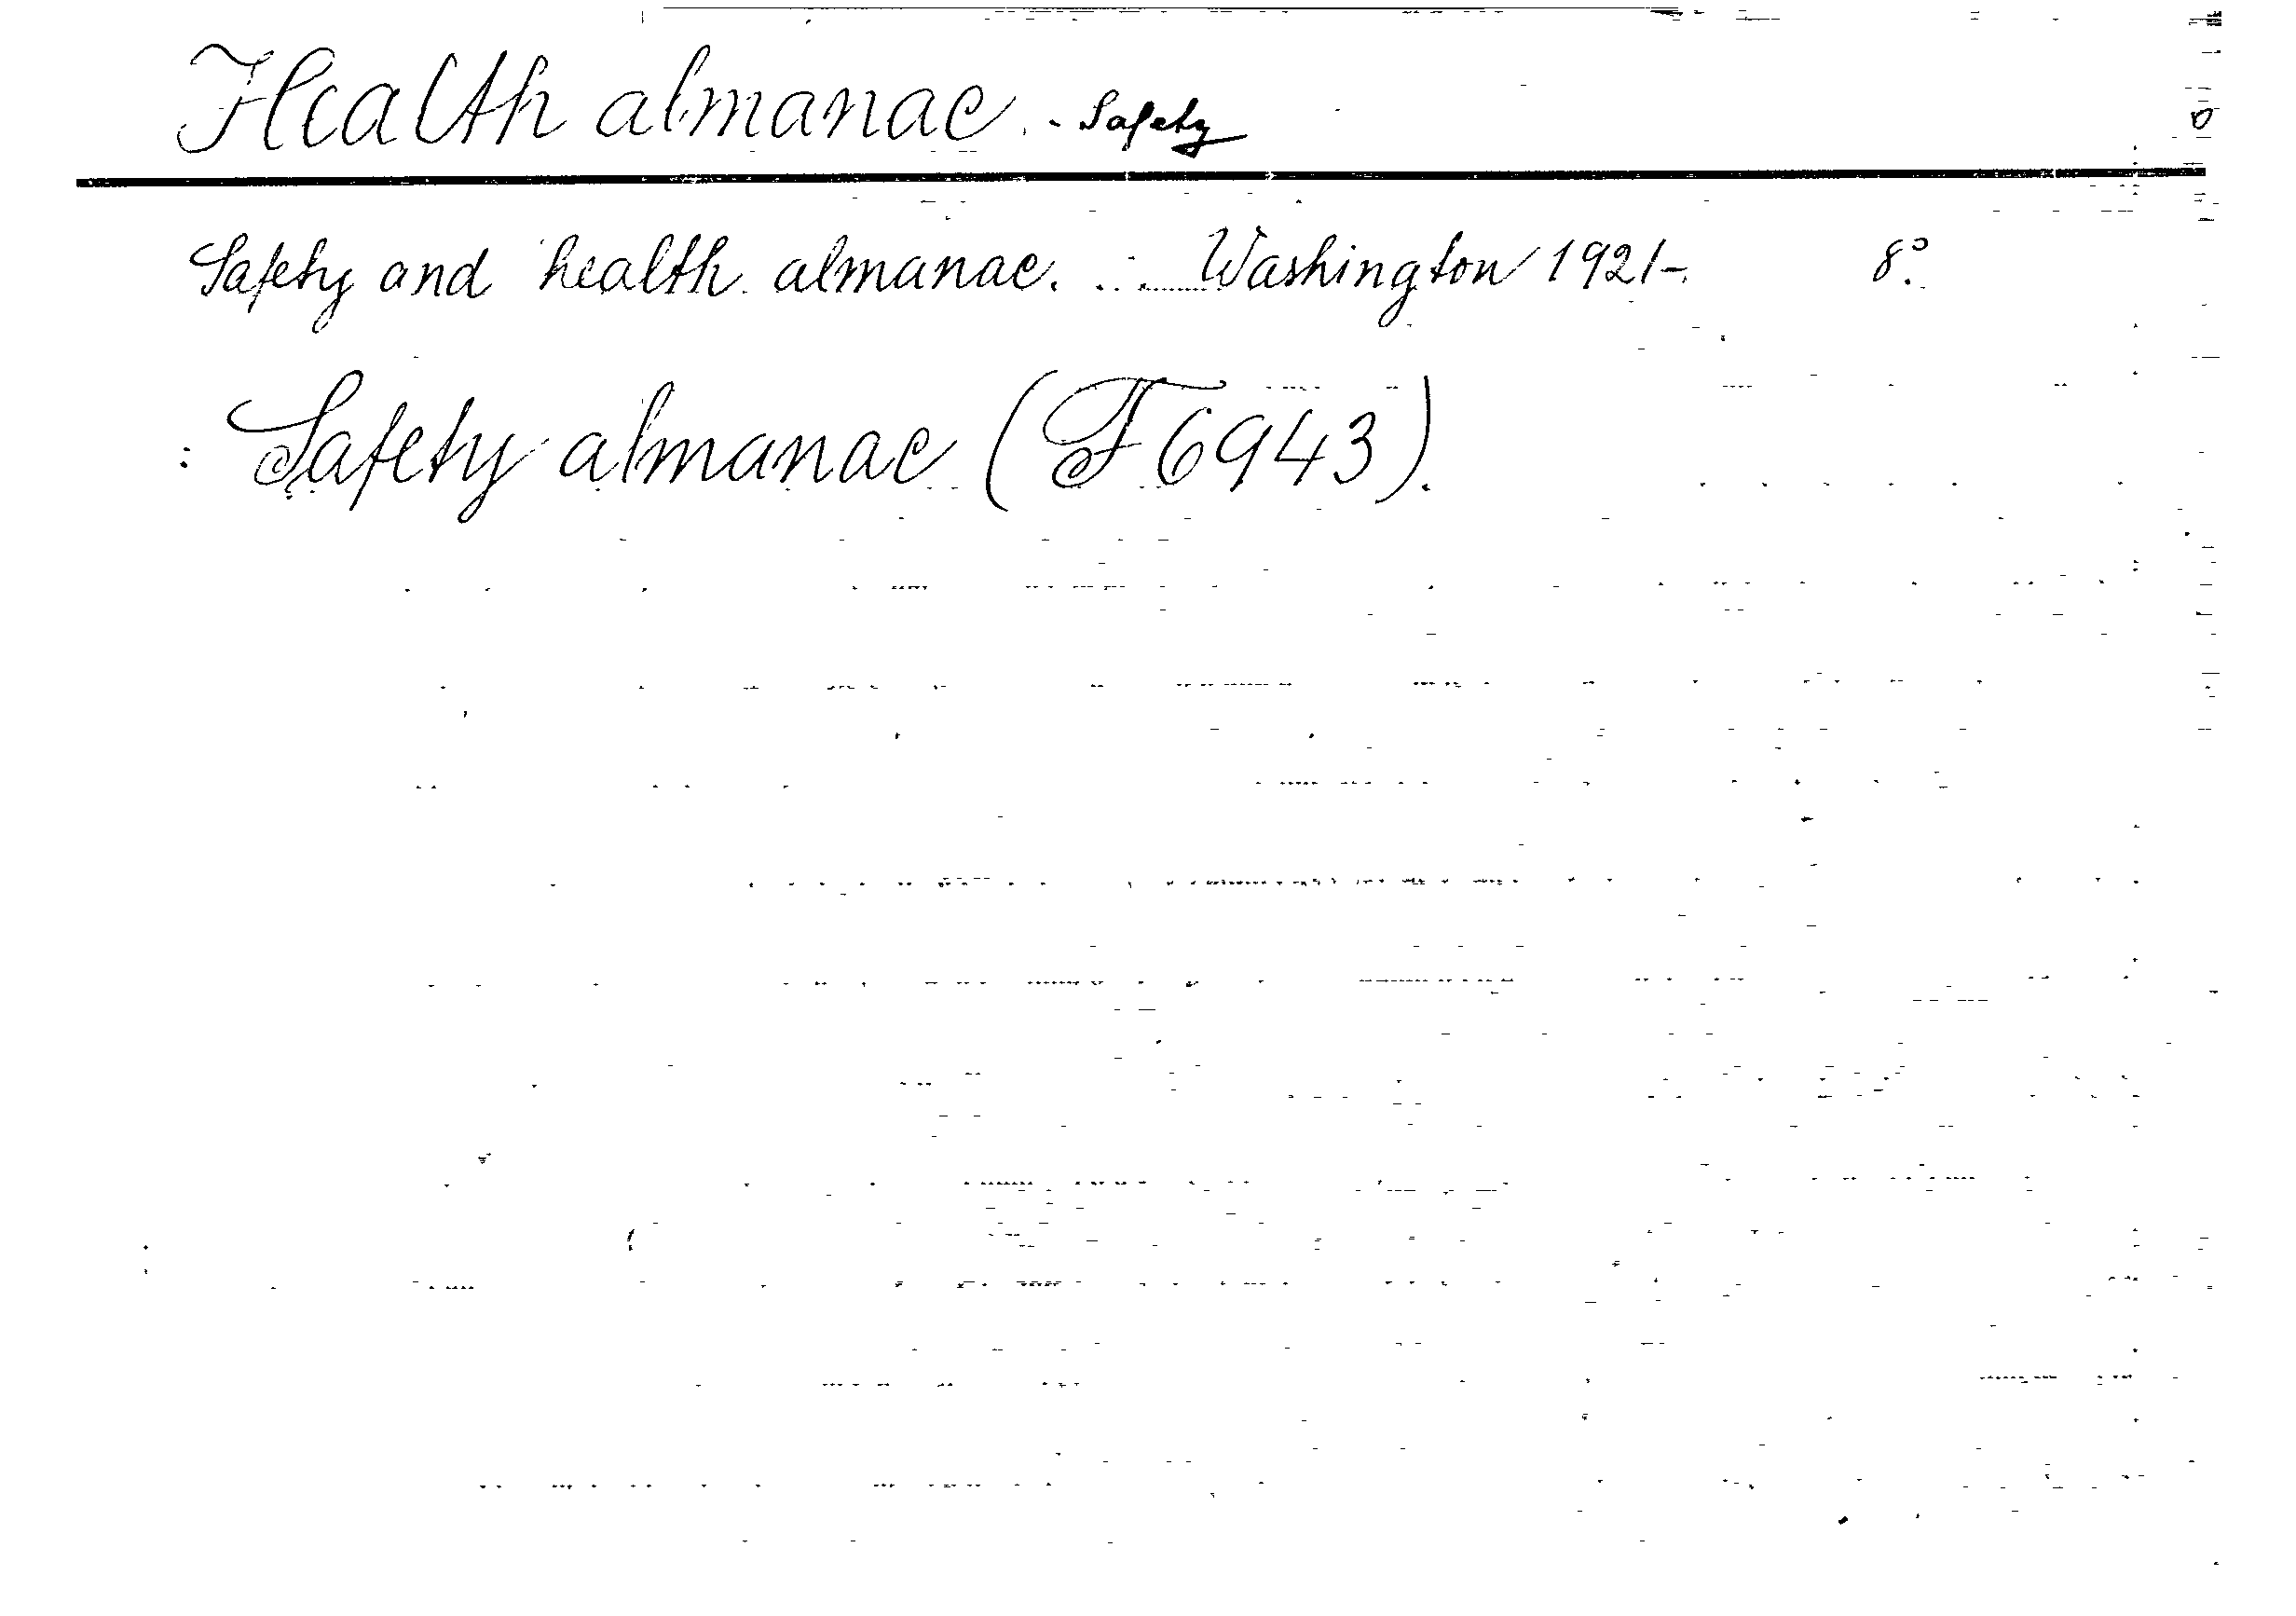 Health almanac. - Safety
Safety and health almanac. ... Washington 1921-. 8°.
: Safety almanac (F 6943).